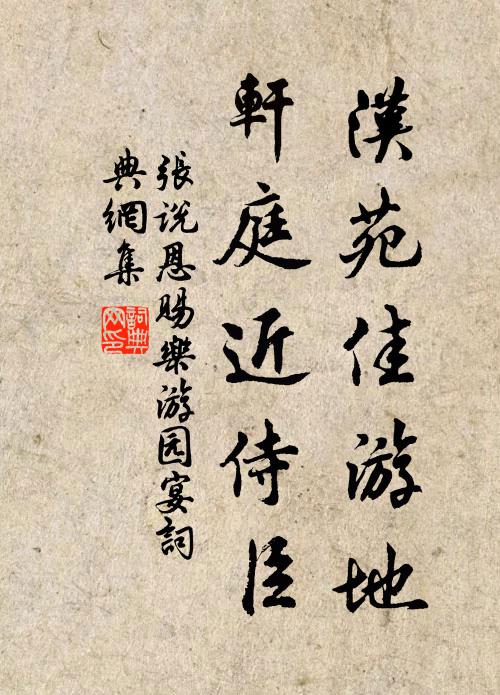 漢苑佳游地
軒庭近侍臣
張說恩賜樂游园宴詞
典網集
詞典
网印